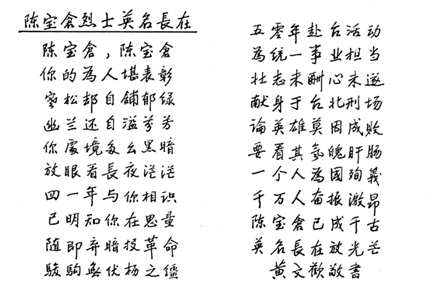 陈宝仓烈士英名長在
陈宝仓，陈宝仓
你的為人堪表彰
寒松却自铺郁绿
幽兰还自溢芬芳
你處境多么黑暗
放眼看長夜茫茫
四一年与你相识
已明知你在思量
随即弃暗投革命
骏驹無伏枥之鑑
五零年赴台活动
為统一事业担当
壮志未酬心未遂
献身于台北刑场
論英雄莫因成敗
要看其氣魄肝肠
一个人為國殉義
千万人奋振激昂
陈宝仓已成千古
英名長在放光芒
黄文歡敬書